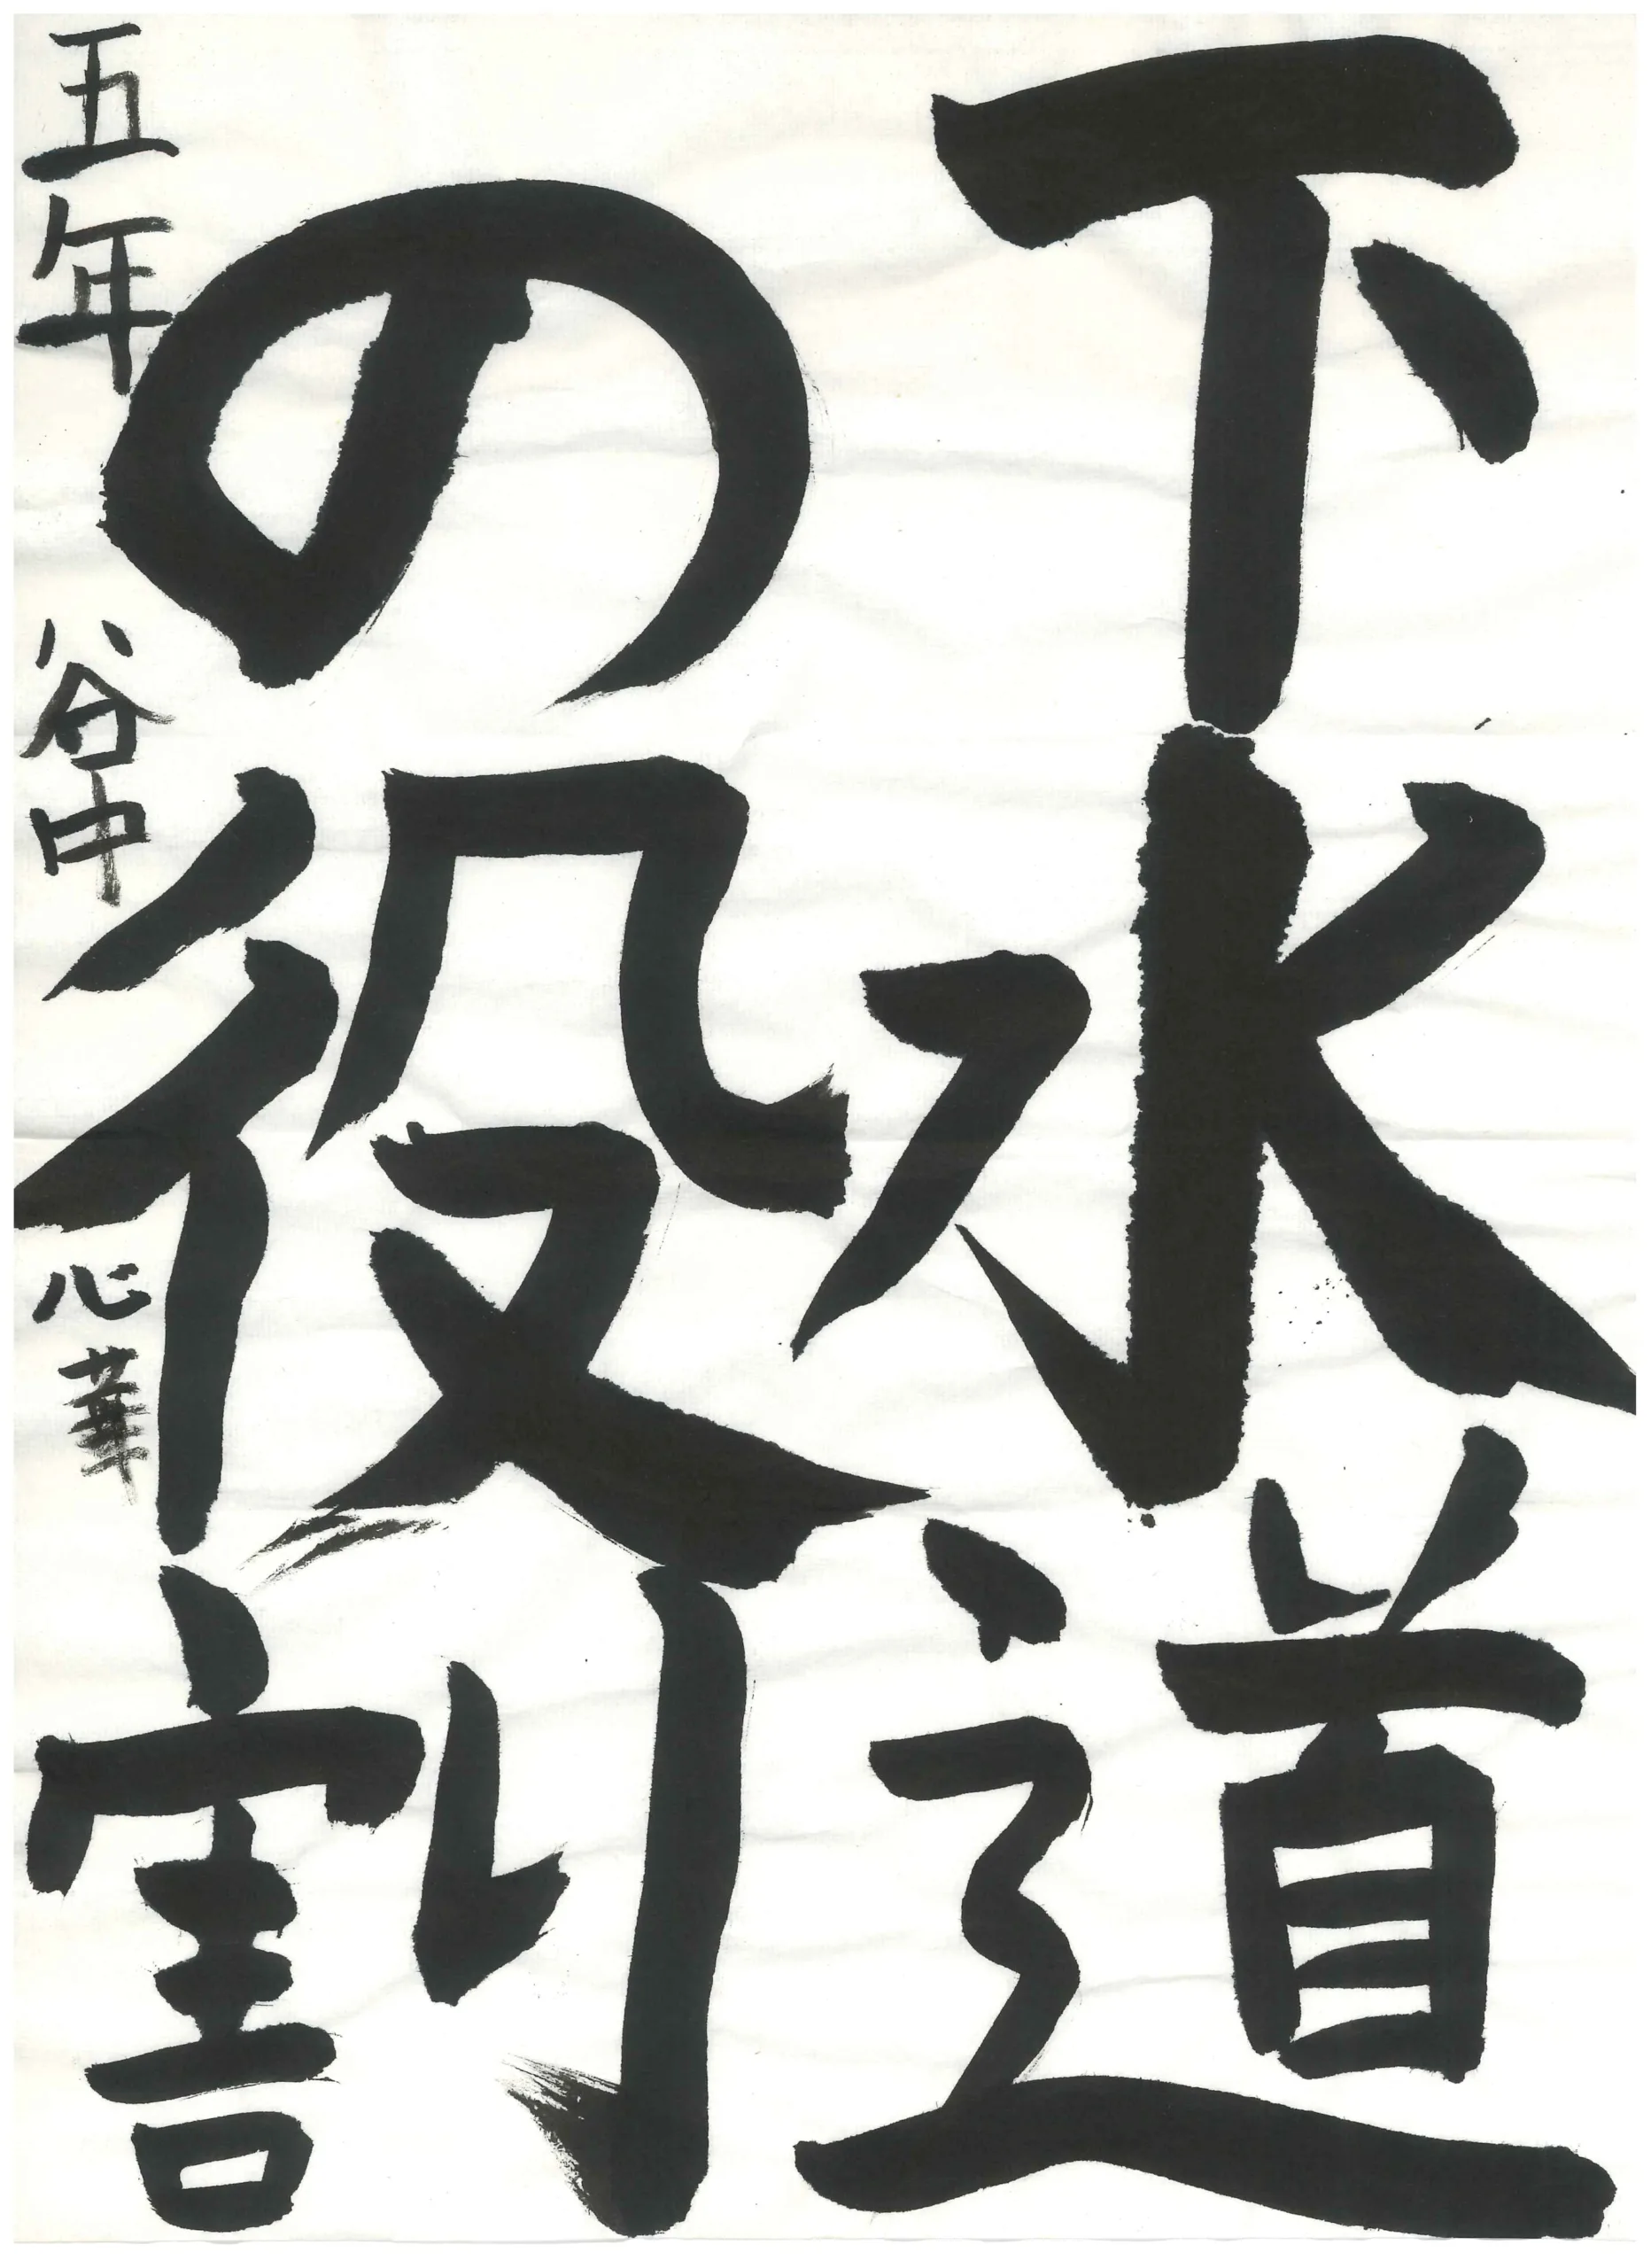 下水道
の役割
五年 谷中 心華